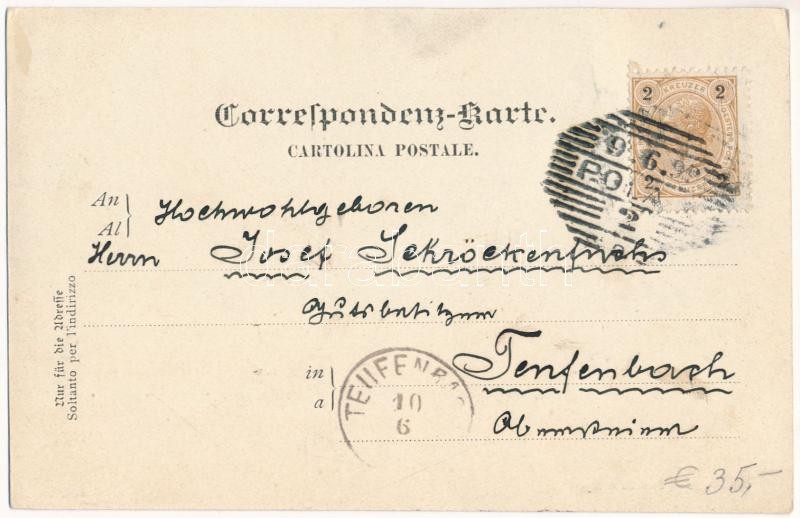 2 KREUZER 2
Correspondenz-Karte.
CARTOLINA POSTALE.
9. 6. 9
PO
2
An
Al
Hochwohlgeboren
Herrn Josef Schröckenfuchs
Gutsbesitzer
in
a
Teufenbach
Obersteier
Nur für die Adresse
Soltanto per l'indirizzo
TEUFENBAC
10
6
€ 35,-